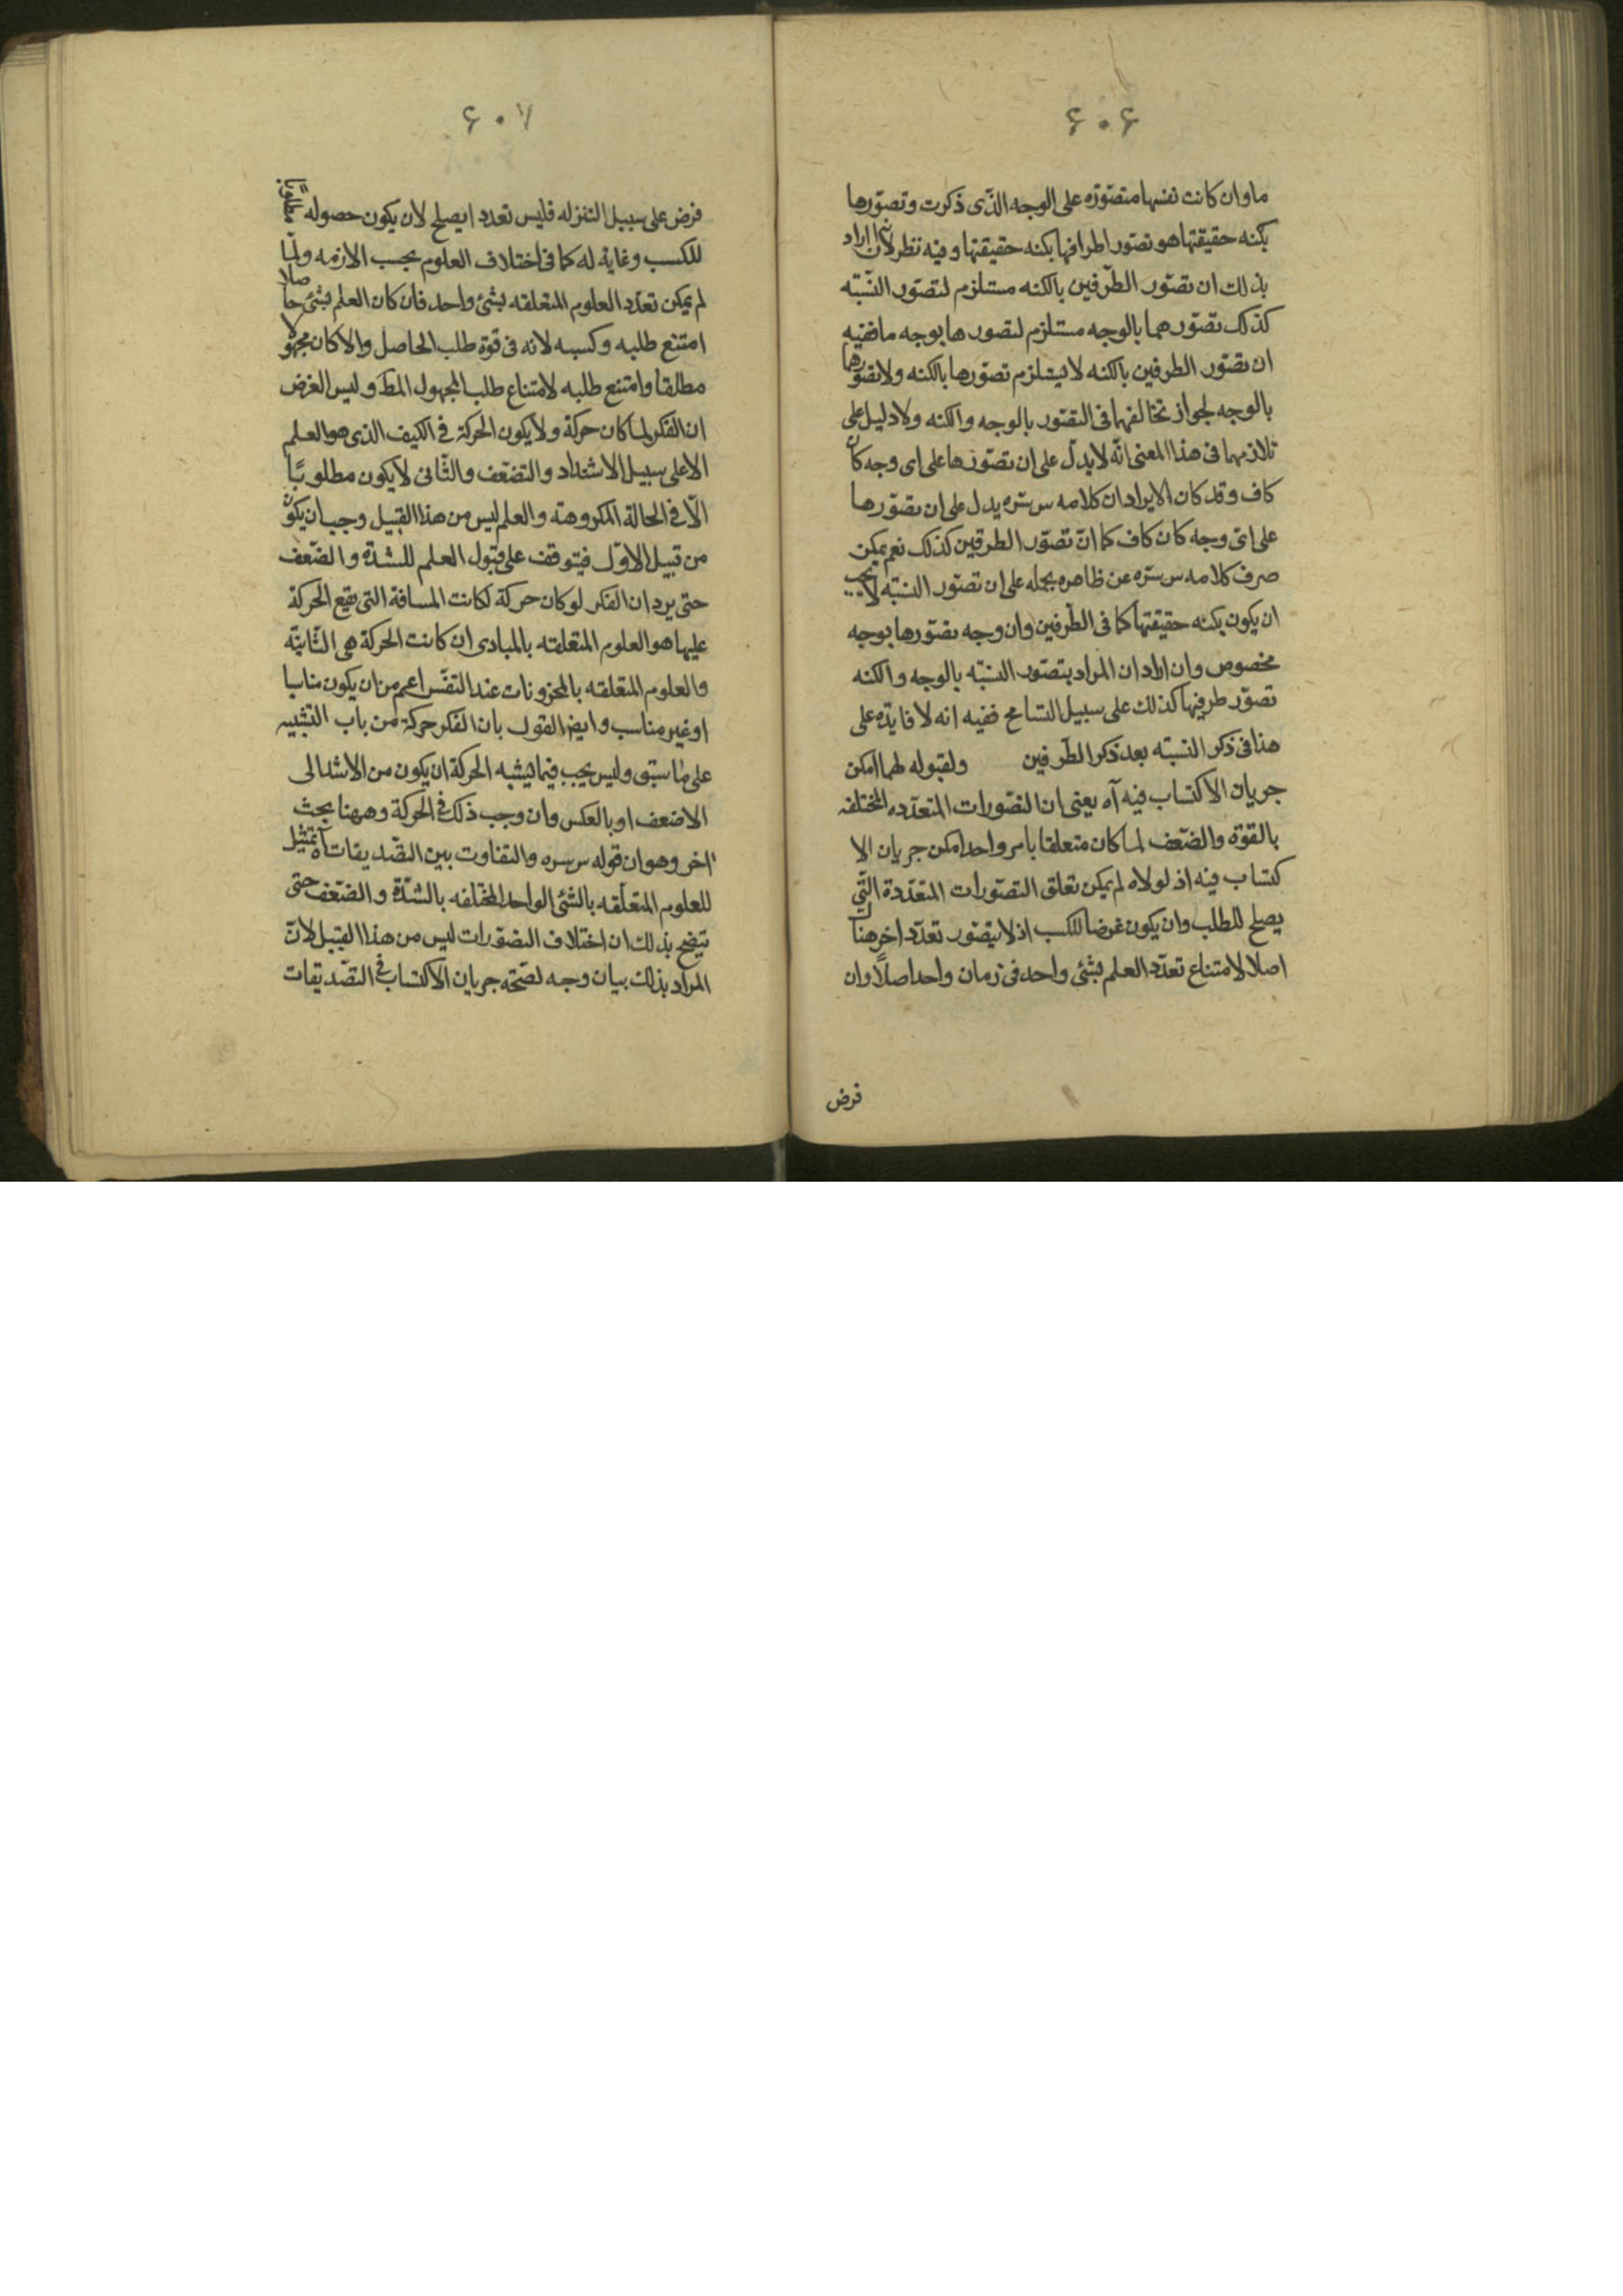 ۶۰۶
ما وان كانت نفسها متصوّره على الوجه الذّى ذكرت وتصوّرها
بكنه حقيقتها هو تصوّر اطرافها بكنه حقيقتها وفيه نظر لان اراد
بذلك ان تصوّر الطّرفين بالكنه مستلزم لتصوّر النّسبّته
كذلك تصوّرهما بالوجه مستلزم لتصورها بوجه ما ففيه
ان تصوّر الطرفين بالكنه لا يستلزم تصوّرها بالكنه ولا تصوّرها
بالوجه لجواز تخالفهما فى التصّور بالوجه والكنه ولا دليل على
تلازمهما فى هذا المعنى انّه لا يدلّ على ان تصوّرها على اى وجه كان
كاف وقد كان الايراد ان كلامه س سرّه يدل على ان تصوّرها
على اىّ وجه كان كاف كما انّ تصوّر الطرفين كذلك نعم يمكن
صرف كلامه س سرّه عن ظاهره بحمله على ان تصّور النسبّه لا يجب
ان يكون بكنه حقيقتها كما فى الطّرفين وان وجه تصّورها بوجه
مخصوص وان اراد ان المراد بتصّور النسبّه بالوجه والكنه
تصوّر طرفيها كذلك على سبيل التسامح ففيه انه لا فايدّه على
هذا فى ذكر النسبّه بعد ذكر الطّرفين ولقبوله لهما امكن
جريان الاكتساب فيه آه يعنى ان التصّورات المتعدّده المختلفه
بالقوّة والضّعف لما كان متعلقا بامر واحد امكن جريان الا
كتساب فيه اذ لولاه لم يمكن تعلق التصّورات المتعدّدة التّى
يصلح للطلب وان يكون غرضا للكسب اذ لا يتصّور تعدّد اخر هناك
اصلا لامتناع تعدّد العلم بشئ واحد فى زمان واحد اصلاً وان
فرض
۶۰۷
فرض على سبيل التنزله فليس تعدد ايصلح لان يكون حصوله
للكسب وغاية له كما فى اختلاف العلوم بحسب الازمه ولمّا
لم يمكن تعدّد العلوم المتعلقه بشئ واحد فان كان العلم بشئ حاصلا
امتنع طلبه وكسبه لانه فى قوة طلب الحاصل والا كان مجهولا
مطلقا وامتنع طلبه لامتناع طلب المجهول المط وليس الغرض
ان الفكر لما كان حركة ولا يكون الحركة فى الكيف الذى هو العلم
الا على سبيل الاشتداد والتضعّف والثّانى لا يكون مطلوبًا
الّا فى الحالة المكروهته والعلم ليس من هذا القبيل وجب ان يكون
من قبيل الاوّل فيتوقف على قبول العلم للشدّة والضّعف
حتى يرد ان الفكر لو كان حركة لكانت المسافة التى يقع الحركة
عليها هو العلوم المتعلقه بالمبادى ان كانت الحركة هى الثّانيّه
والعلوم المتعلقه بالمخزونات عند النفّس اعم من ان يكون مناسبا
او غير مناسب وايضا القول بان الفكر حركة من باب التشبيه
على ما سبق وليس يجب فيما يشبه الحركة ان يكون من الاشد الى
الاضعف او بالعكس وان وجب ذلك فى الحركة وههنا بحث
اخر وهو ان قوله س سره والتفاوت بين التصّديقات آه تمثيل
للعلوم المتعلّقه بالشئ الواحد المختلفه بالشّدّة والضّعف حتى
يتضح بذلك ان اختلاف التصّورات ليس من هذا القبيل لانّ
المراد بذلك بيان وجه لصّحته جريان الاكتساب فى التصّديقات